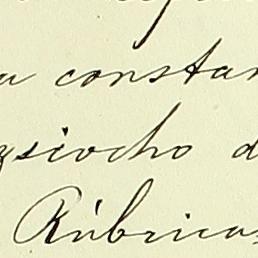 a constan
zsiocho d
Rúbricas